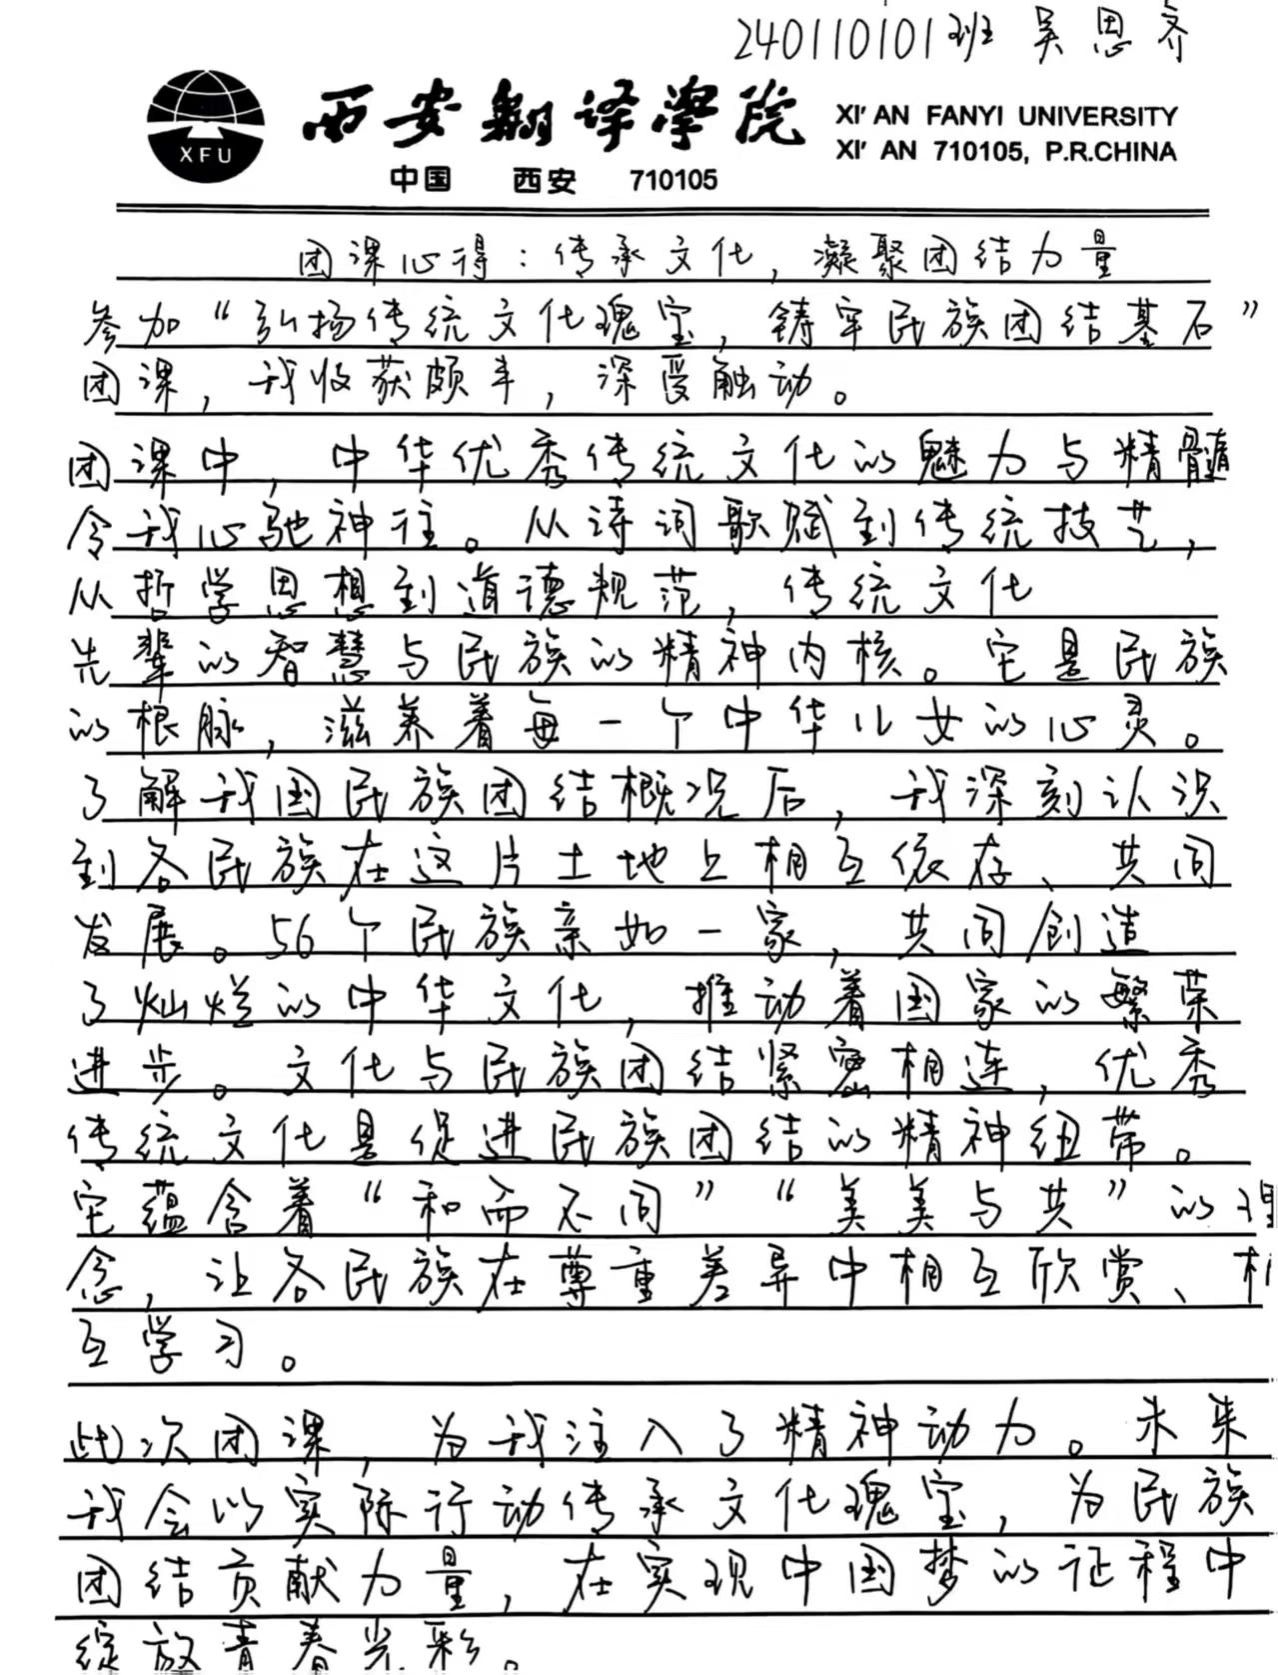 240110101班 吴思齐
西安翻译学院
XI' AN FANYI UNIVERSITY
XI' AN 710105, P.R.CHINA
XFU
中国 西安 710105
团课心得：传承文化，凝聚团结力量
参加“弘扬传统文化瑰宝，铸牢民族团结基石”
团课，我收获颇丰，深受触动。
团课中，中华优秀传统文化的魅力与精髓
令我心驰神往。从诗词歌赋到传统技艺，
从哲学思想到道德规范，传统文化
先辈的智慧与民族的精神内核。它是民族
的根脉，滋养着每一个中华儿女的心灵。
了解我国民族团结概况后，我深刻认识
到各民族在这片土地上相互依存、共同
发展。56个民族亲如一家，共同创造
了灿烂的中华文化，推动着国家的繁荣
进步。文化与民族团结紧密相连，优秀
传统文化是促进民族团结的精神纽带。
它蕴含着“和而不同”“美美与共”的理
念，让各民族在尊重差异中相互欣赏、相
互学习。
此次团课，为我注入了精神动力。未来
我会以实际行动传承文化瑰宝，为民族
团结贡献力量，在实现中国梦的征程中
绽放青春光彩。